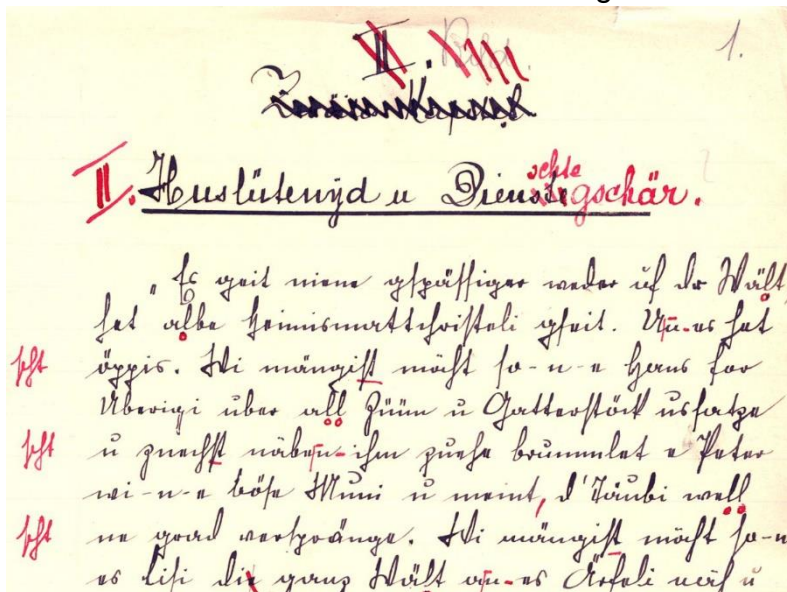 II. VIII
1.
II. Huslütenyd u Dienschtegschär.
„Es geit niene gspässiger weder uf dr Wält,
het albe Heinismattchristeli gseit. Un-es het
scht öppis. Wi mängist möcht so-n-e Hans vor
Überigi über all Züün u Gatterstöck ussatze
scht u znechst näben-ihm zuehe brummlet e Peter
wi-n-e böse Muni u meint, d'Täubi well
scht ne grad verspränge. Wi mängist möcht so-n-
es Lisi die ganz Wält a-n-es Ärfeli näh u